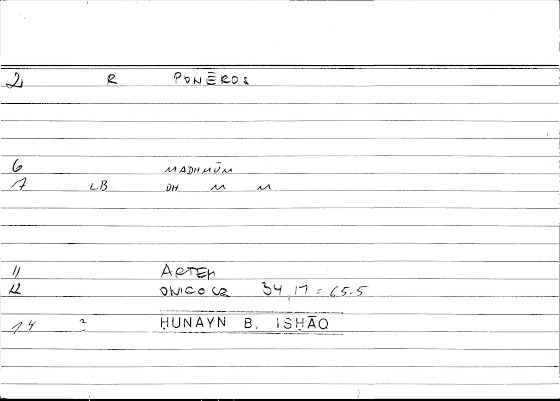 2 R PONĒROS
6 MADHMŪM
7 LB DH M M
11 ARTEM
12 ONIOCR 34,17 = 65.5
14 ? ḤUNAYN B. ISḤĀQ